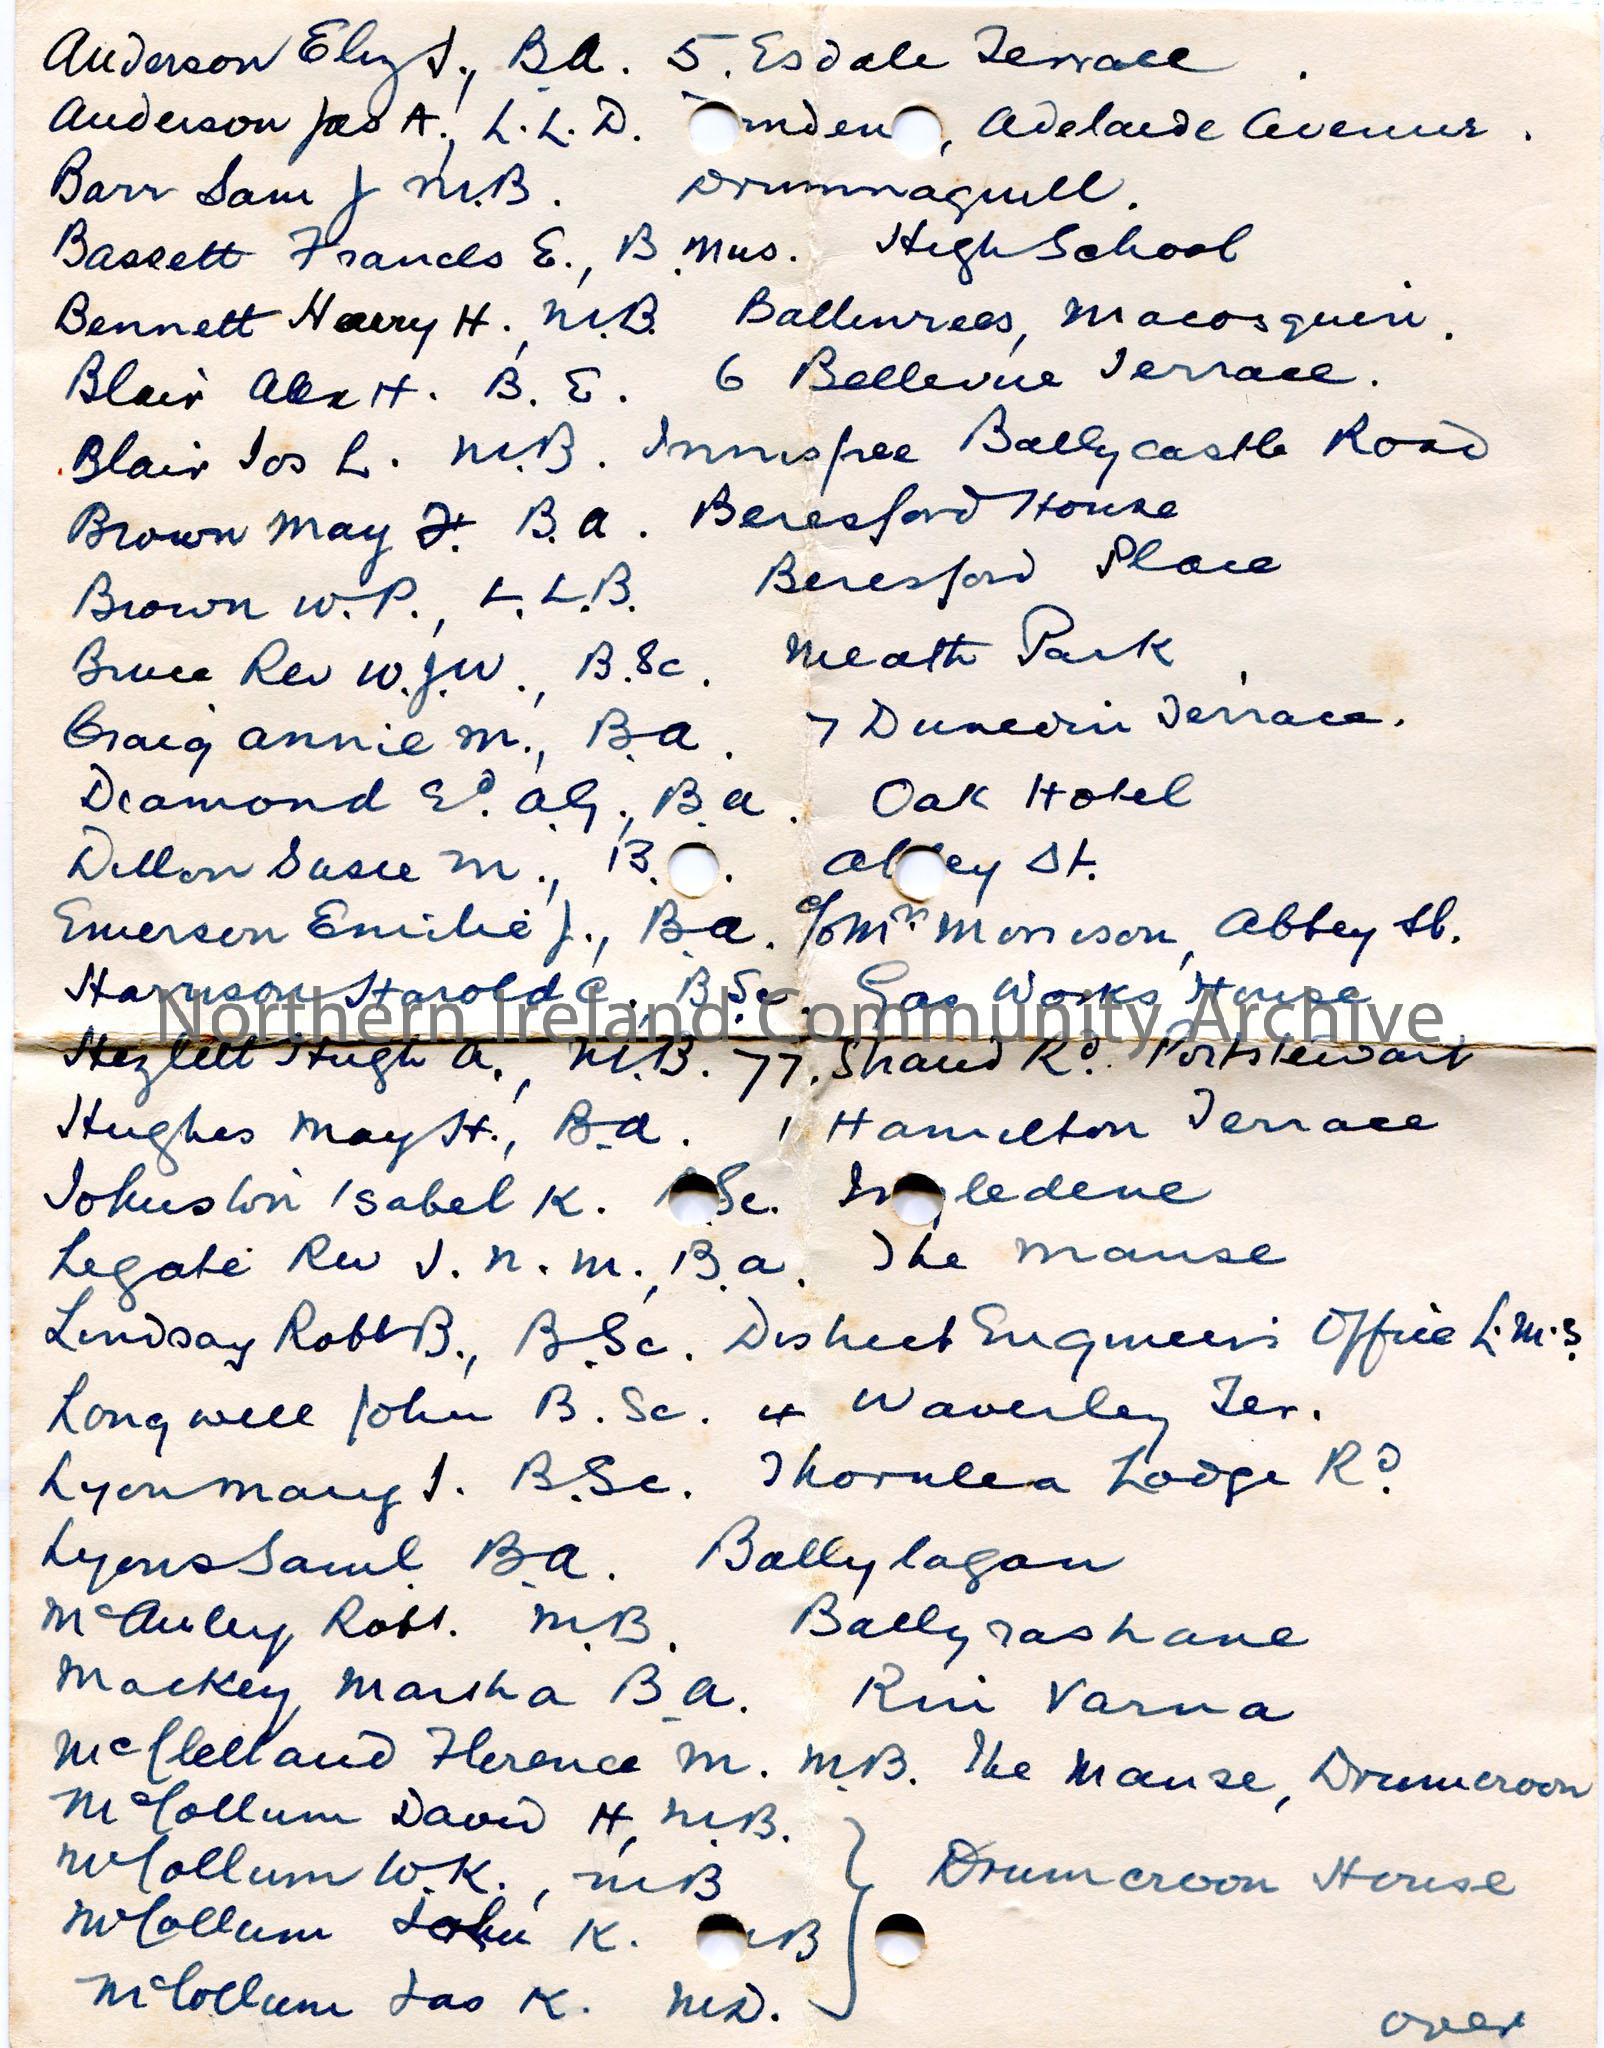 Anderson Eliz J., B.A. 5. Esdale Terrace.
Anderson Jas A., L.L.D. , Adelaide Avenue.
Barr Sam J M.B. Drumnaquill.
Bassett Frances E., B.Mus. High School
Bennett Harry H., M.B. Ballinrees, Macosquin.
Blair Alex H. B.E. 6 Bellevue Terrace.
Blair Jos L. M.B. Innisfree Ballycastle Road
Brown May F. B.A. Beresford House
Brown W.P., L.L.B. Beresford Place
Bruce Rev W.J.W., B.Sc. Meath Park
Craig Annie M., B.A. 7 Dunedin Terrace.
Diamond Ed. A.G., B.A. Oak Hotel
Dillon Susie M., B. . Abbey St.
Emerson Emilie J., B.A. c/o Mrs Morrison, Abbey St.
Harrison Harold C., B.Sc. Gas Works House
Northern Ireland Community Archive
Hezlett Hugh A., M.B. 77. Strand Rd. Portstewart
Hughes May H., B.A. 1 Hamilton Terrace
Johnston Isabel K. Sc. Ingledene
Legate Rev J.N.M., B.A. The Manse
Lindsay Robt B., B.Sc. District Engineers Office L.M.S.
Longwell John B.Sc. 4 Waverley Ter.
Lyon Mary J. B.Sc. Thornlea Lodge Rd.
Lyons Saml. B.A. Ballylagan
McAuley Robt. M.B. Ballyrashane
Mackey, Martha B.A. Rin Varna
McClelland Florence M. M.B. The Manse, Drumcroon
McCollum David H, M.B.
McCollum W.K., MB } Drumcroon House
McCollum John K. MB
McCollum Jas K. M.D.
over